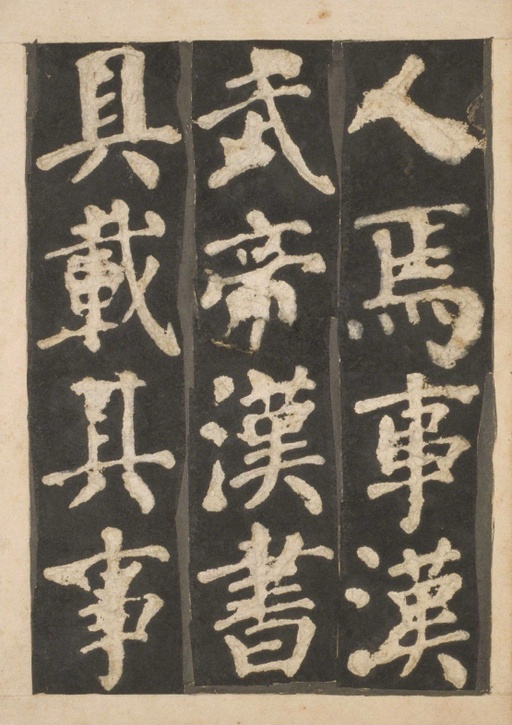 人焉事漢
武帝漢書
具載其事